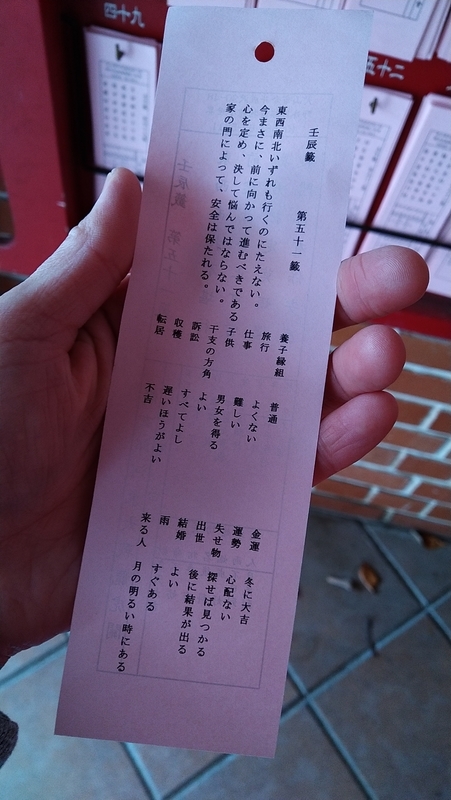 四十九
五十二
壬辰籤 第五十一籤
東西南北いずれも行くのにたえない。
今まさに、前に向かって進むべきである
心を定め、決して悩んではならない。
家の門によって、安全は保たれる。
養子縁組 普通
旅行 よくない
仕事 難しい
子供 男女を得る
干支の方角 よい
訴訟 すべてよし
収穫 遅いほうがよい
転居 不吉
金運 冬に大吉
運勢 心配ない
失せ物 探せば見つかる
出世 後に結果が出る
結婚 よい
雨 すぐある
来る人 月の明るい時にある